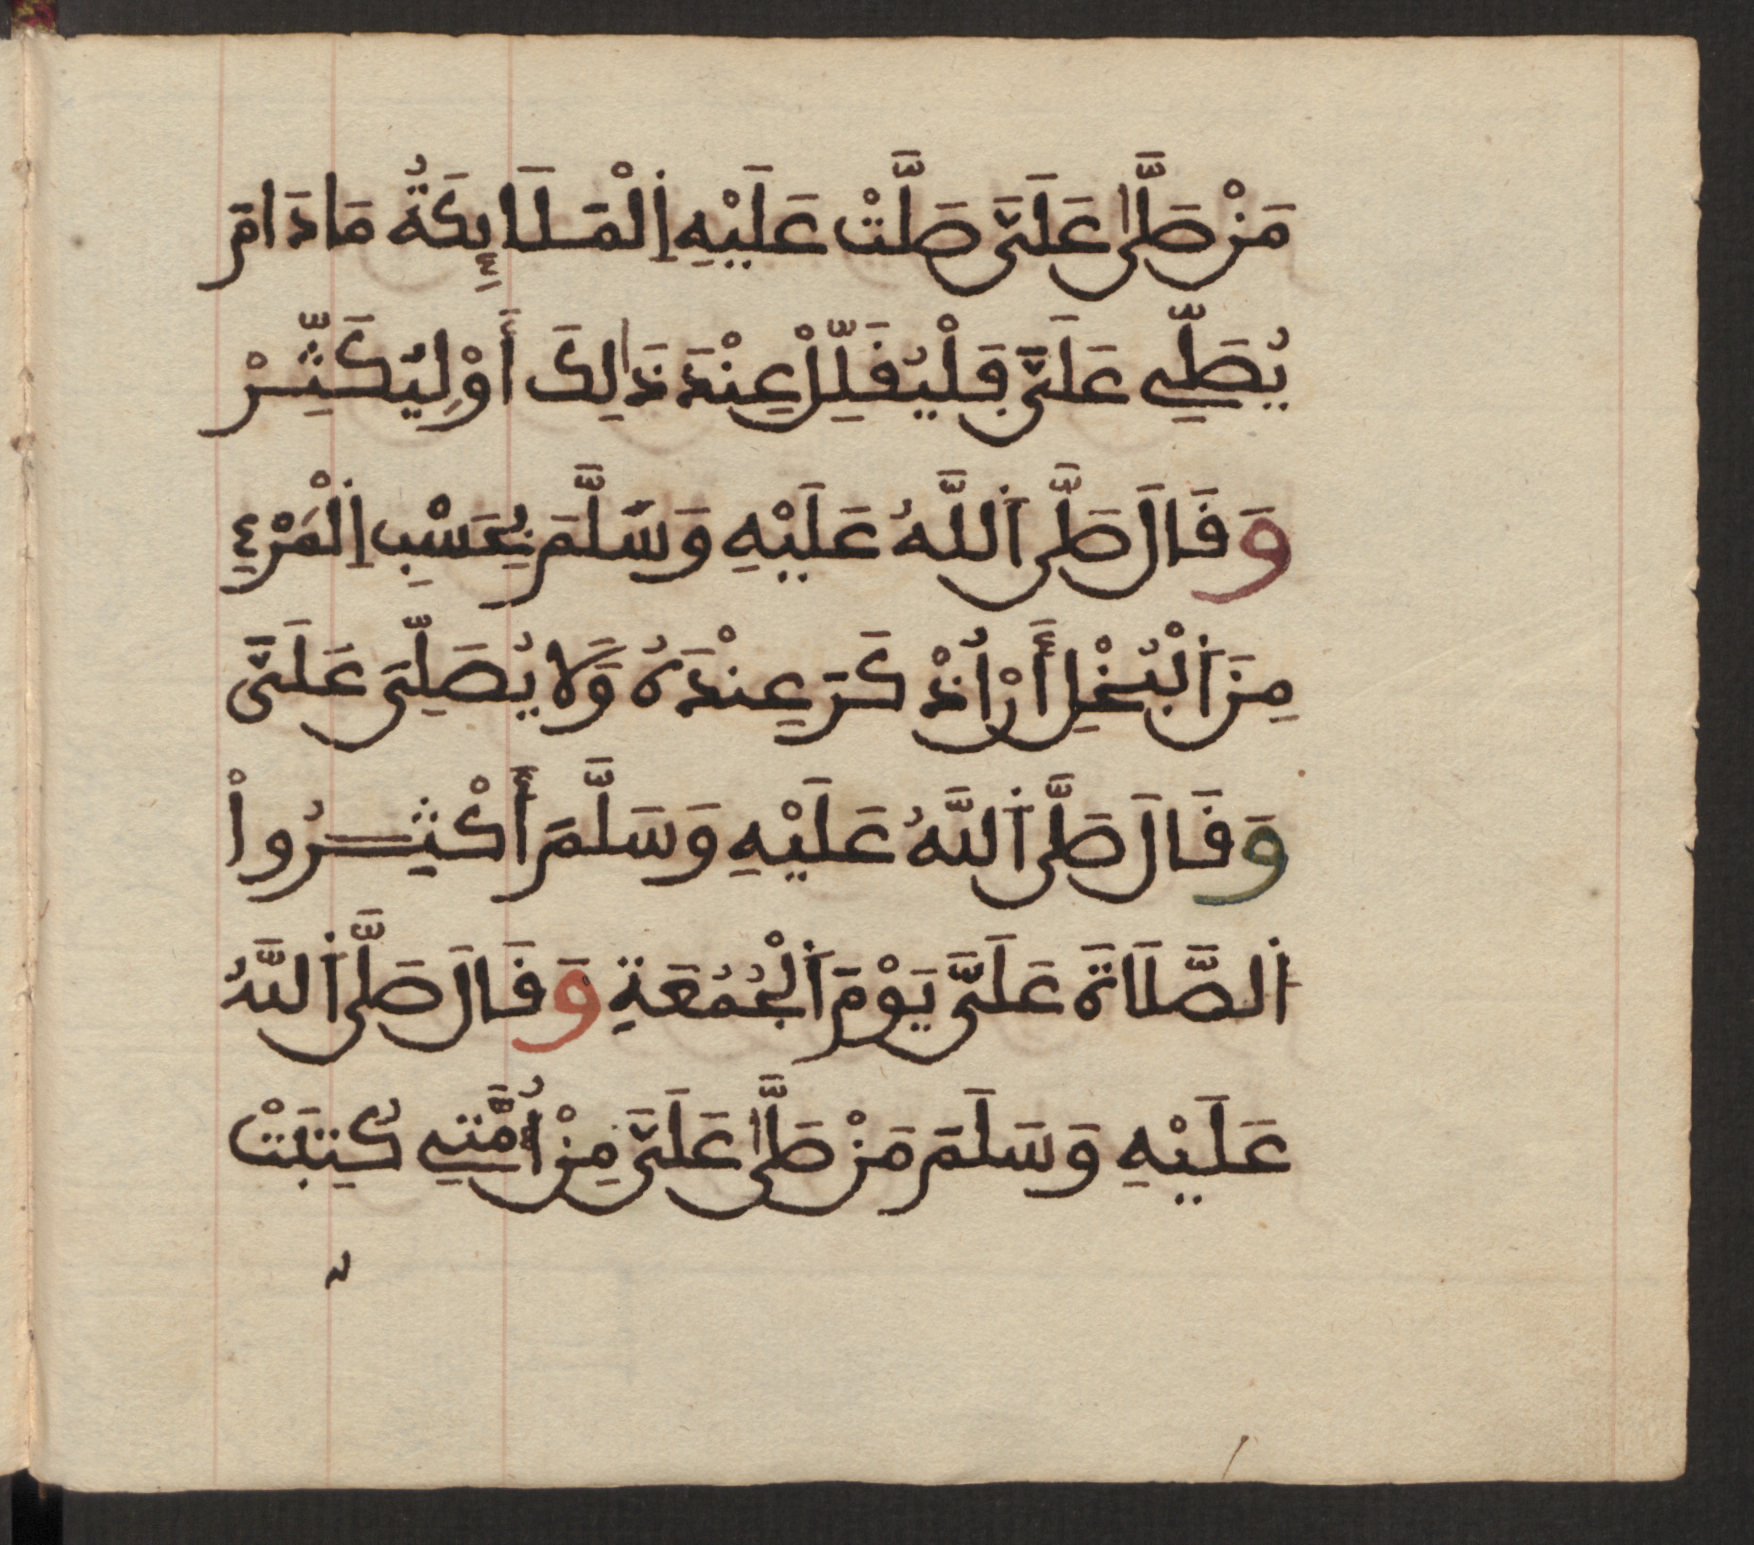 مَنْ صَلَّىٰ عَلَيَّ صَلَّتْ عَلَيْهِ اِ۬لْمَلَائِكَةُ مَا دَامَ
يُصَلِّي عَلَيَّ فَلْيُقَلِّلْ عِنْدَ ذَٰلِكَ أَوْ لِيُكَثِّرْ
وَقَالَ صَلَّى اَ۬للَّهُ عَلَيْهِ وَسَلَّمَ بِحَسْبِ اِ۬لْمَرْءِ
مِنَ اَ۬لْبُخْلِ أَنْ اُذْكَرَ عِنْدَهُ وَلَا يُصَلِّيَ عَلَيَّ
وَقَالَ صَلَّى اَ۬للَّهُ عَلَيْهِ وَسَلَّمَ أَكْثِرُواْ
اَ۬لصَّلَاةَ عَلَيَّ يَوْمَ اَ۬لْجُمُعَةِ وَقَالَ صَلَّى اَ۬للَّهُ
عَلَيْهِ وَسَلَمَ مَنْ صَلَّىٰ عَلَيَّ مِنْ أُمَّتِي كُتِبَتْ